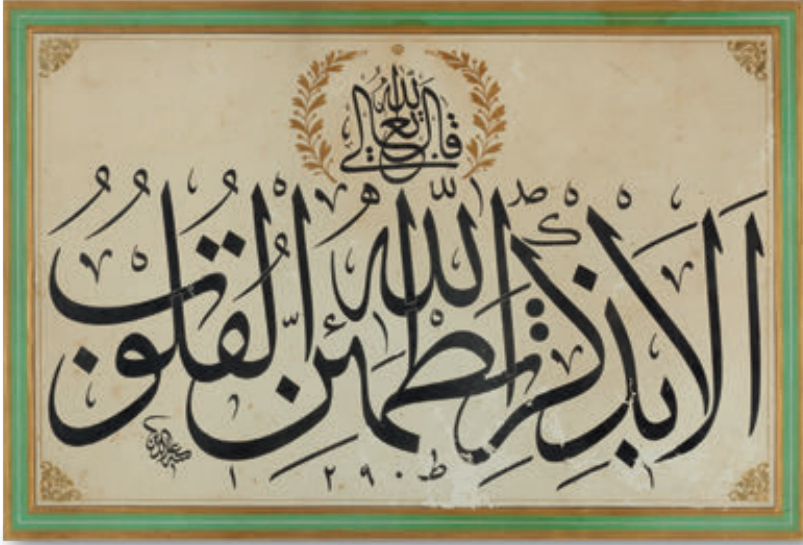 قال الله تعالى
الا بذكر الله تطمئن القلوب
١٢٩٠